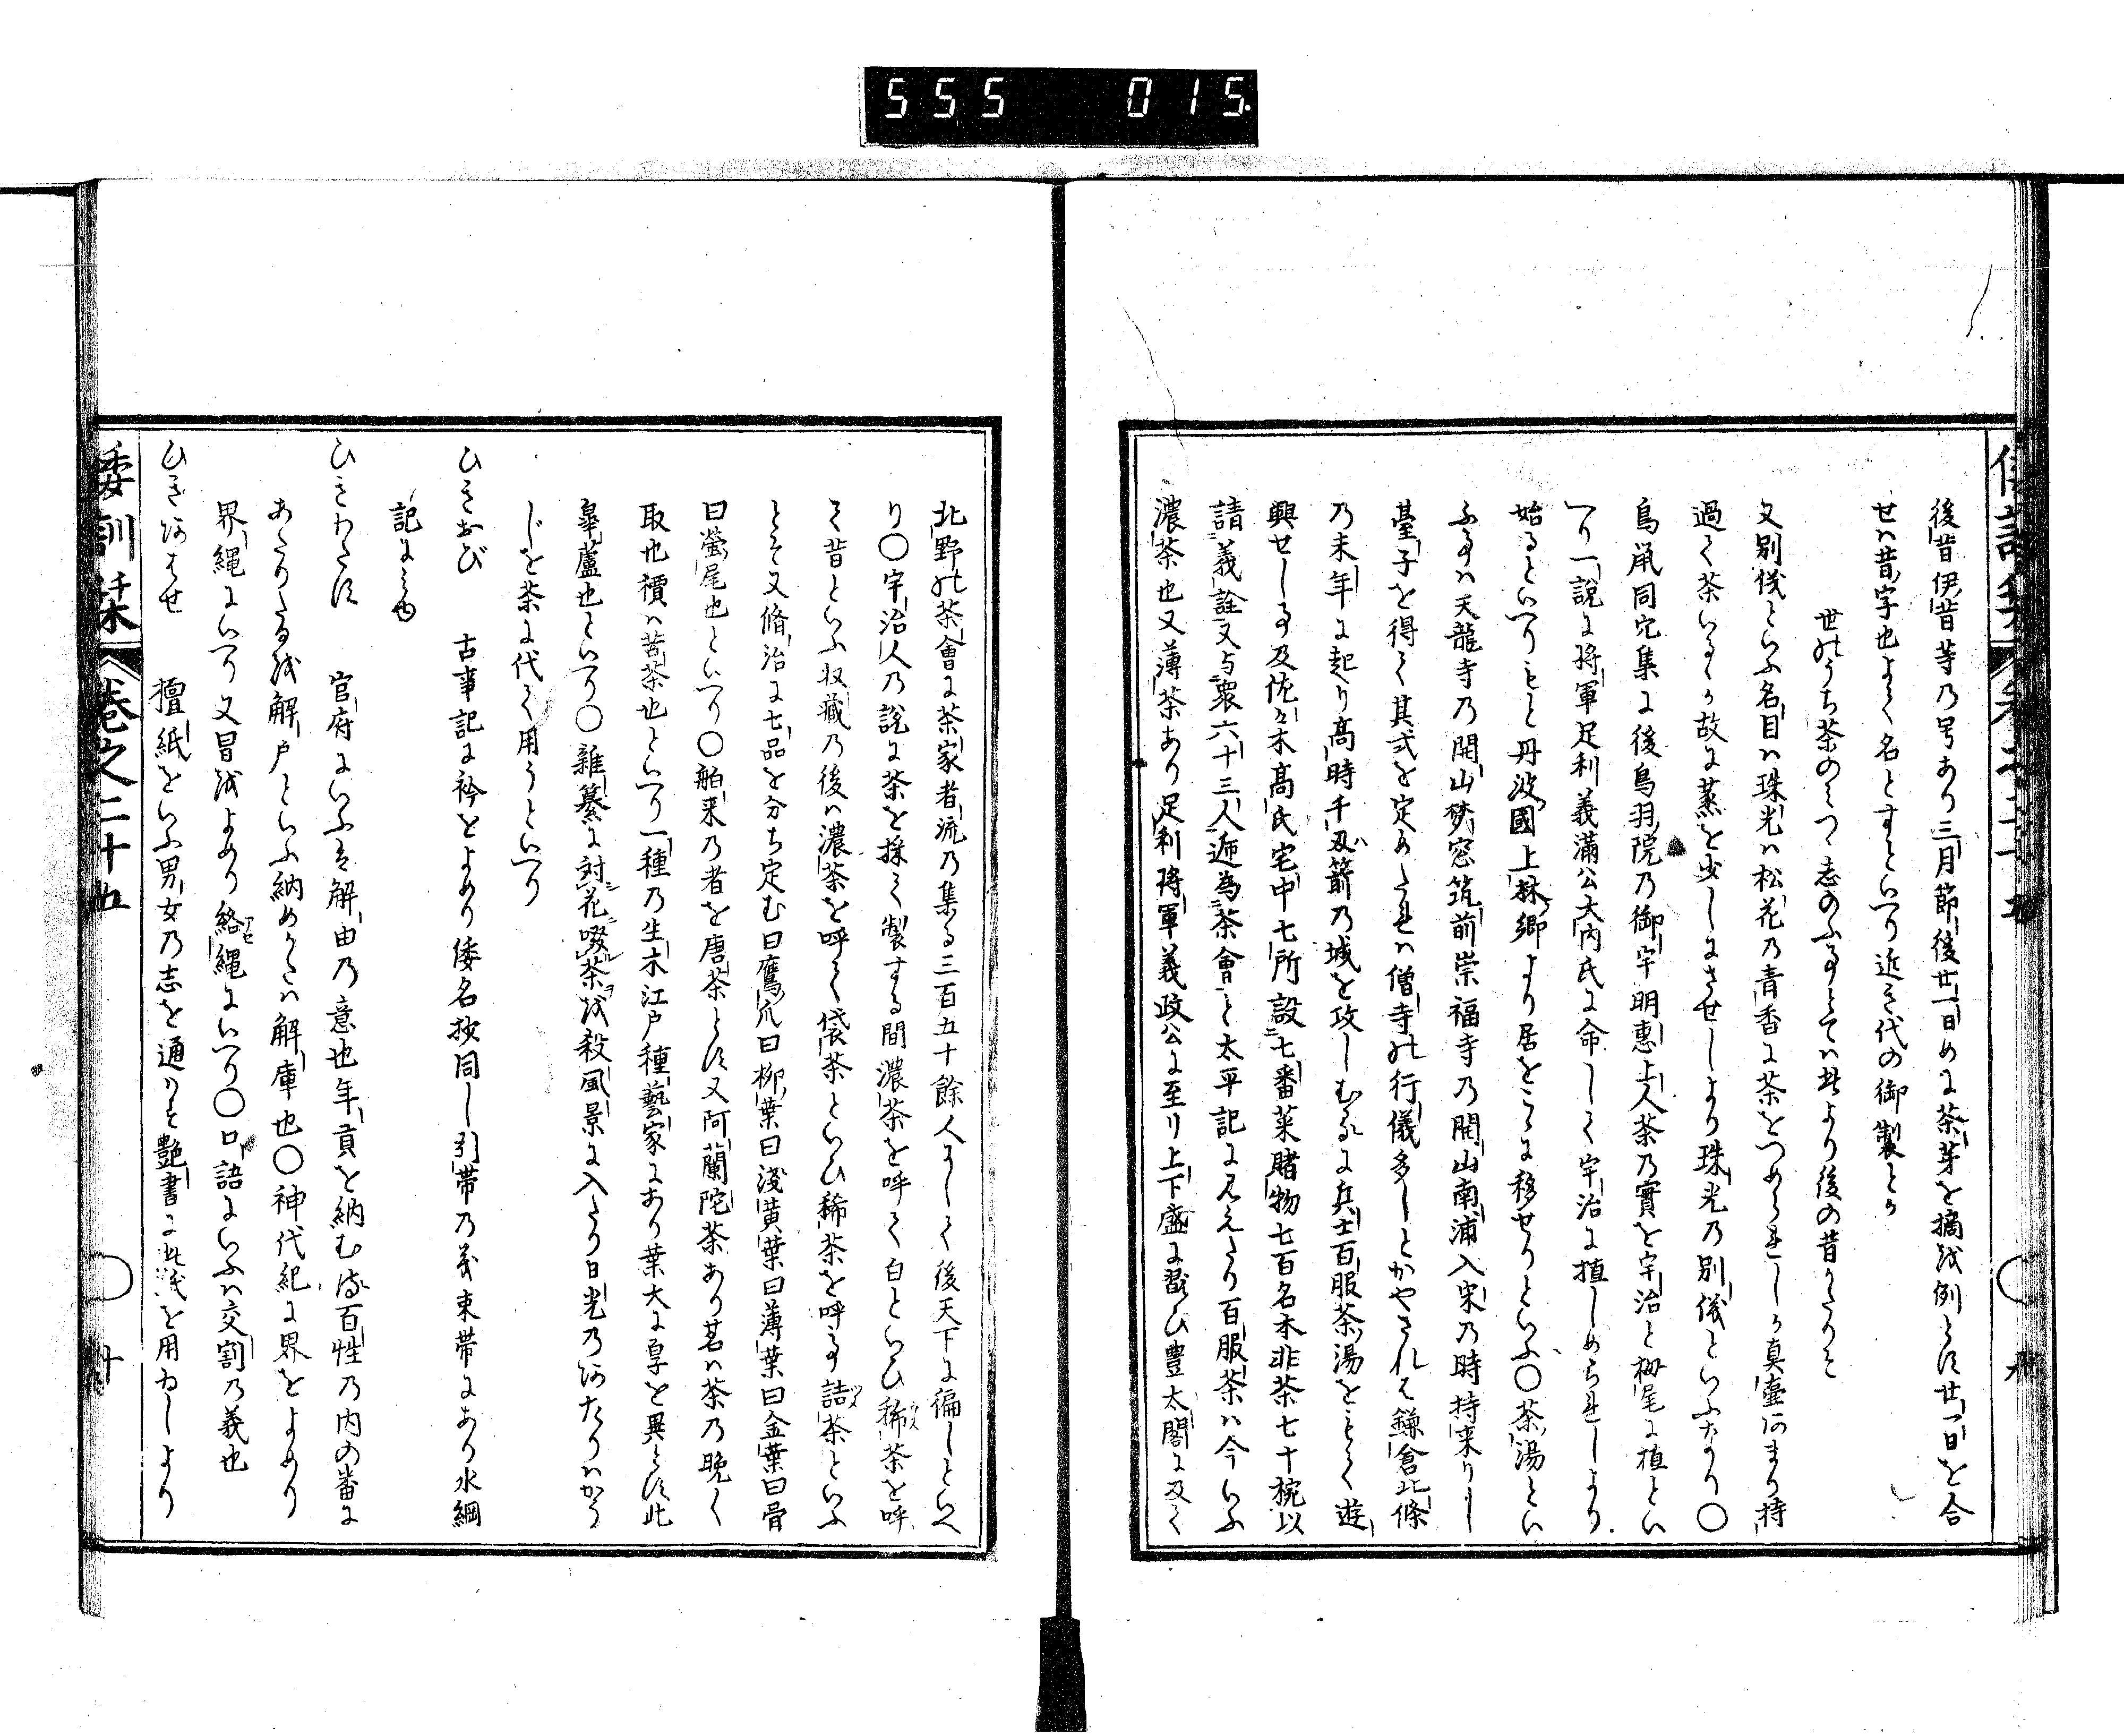 555 015.
後昔伊昔等乃号あり三月節後廿一日めに茶芽を摘を例とす廿一日を合
せハ昔字也よて名とすといへり近き代の御製とか
世のうち茶のミつ志のふ事とてハ是より後の昔かたりを
又別儀といふ名目ハ珠光ハ松花乃青香に茶をつめられしか真壺にあまり持
過て茶いるゝか故に蒸を少しにさせしより珠光乃別儀といふなり〇
鳥鼠同穴集に後鳥羽院乃御宇明惠上人茶乃實を宇治と栂尾に植とい
へり一說に将軍足利義滿公大内氏に命して宇治に植しめられしより
始るといへりもと丹波國上林郷より居をこゝに移せりといふ〇茶湯とい
ふ事ハ天龍寺乃開山梦窓筑前崇福寺乃開山南浦入宋乃時持来りし
臺子を得て其式を定めたれは僧寺の行儀多しとかやされと鎌倉北條
乃末年に起り高時千刄箭乃城を攻しむるに兵士百服茶湯をもて遊
興せし事及佐々木髙氏宅中七所設七番菜賭物七百名本非茶七十椀以
請義詮又与衆六十三人遞為茶會と太平記に見えたり百服茶ハ今いふ
濃茶也又薄茶あり足利將軍義政公に至り上下盛に翫ひ豊太閤に及て
北野の茶會に茶家者流乃集る三百五十餘人にして後天下に徧しといへ
り〇宇治人乃說に茶を採て製する間濃茶を呼て白といひ稀茶を呼
て昔といふ収藏乃後ハ濃茶を呼て袋茶といひ稀茶を呼る詰茶といふ
とそ又脩治に七品を分ち定む曰鷹爪曰柳葉曰淺黃葉曰薄葉曰金葉曰骨
曰鶯尾也といへり〇舶来乃者を唐茶とす又阿蘭陀茶あり茗ハ茶乃晩く
取也檟ハ苦茶也といへり一種乃生木江戸種藝家にあり葉大に厚を異とす此
皐蘆也といへり〇雜纂に対花啜茶を殺風景に入たり日光乃あたりハかう
じを茶に代て用うといへり
ひきおび　古事記に衿をよめり倭名抄同し引帯乃義束帯にあり水綱
記にミゆ
ひきわたす　官府にいふは解由乃意也年貢を納む時百性乃内の番に
あたりたるを解戸といふ納めかたハ解庫也〇神代紀に界をよめり
界縄にいへり又冒をよめり絡縄にいへり〇口語にいふハ交割乃義也
ひきあはせ　擅紙をいふ男女乃志を通ハと艶書に此紙を用ゐしより
倭訓栞　卷之二十五　〇　十